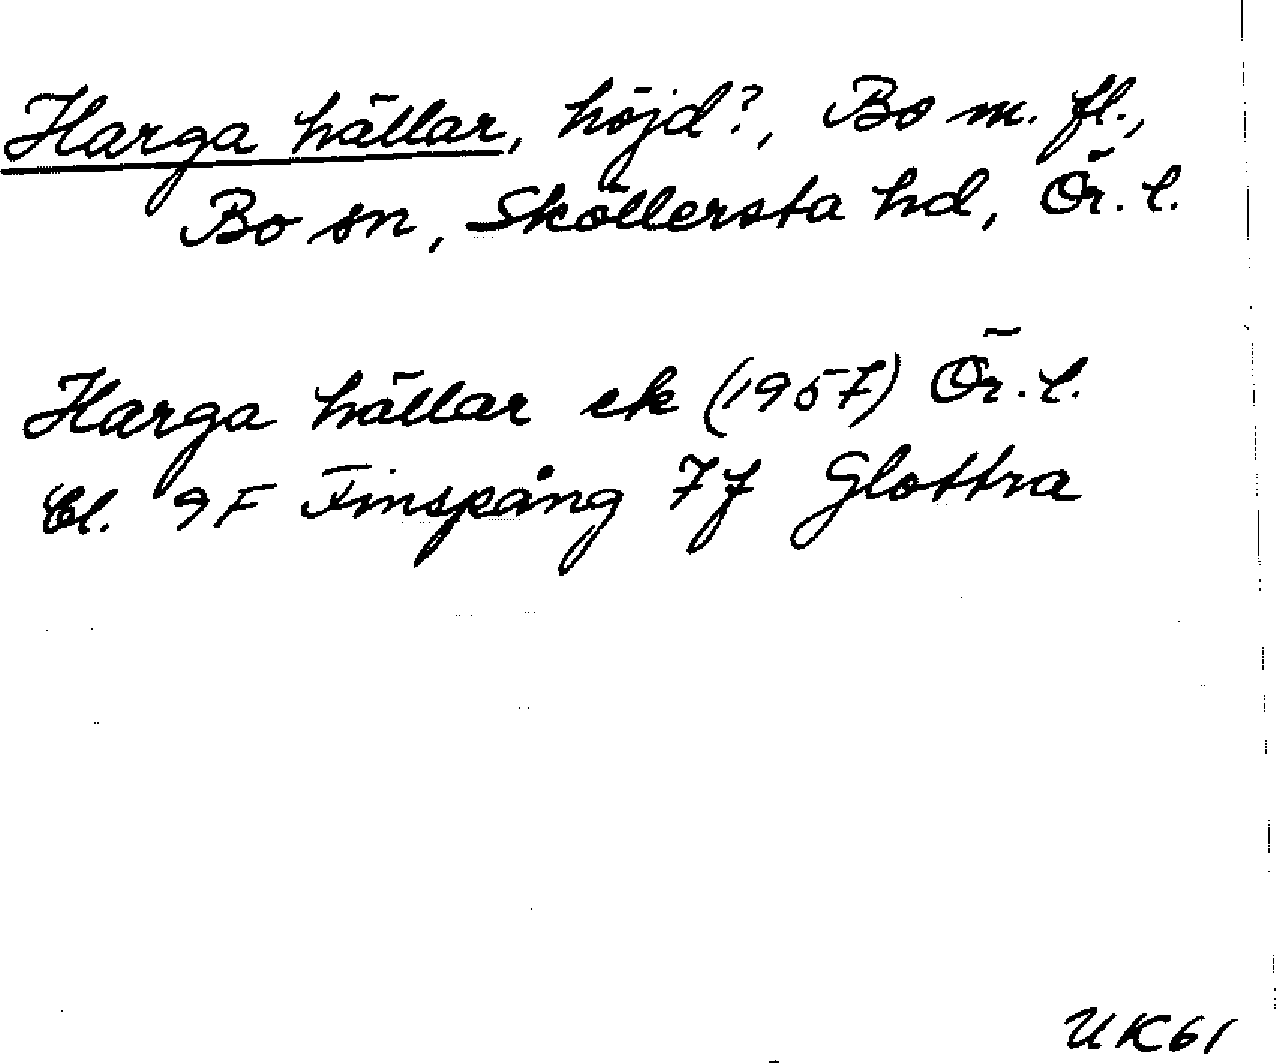 Harga hällar, höjd?, Bo m. fl.,
Bo sn, Sköllersta hd, Ör. l.
Harga hällar ek (1957) Ör. l.
Bl. 9F Finspång 7f Glottra
UK61